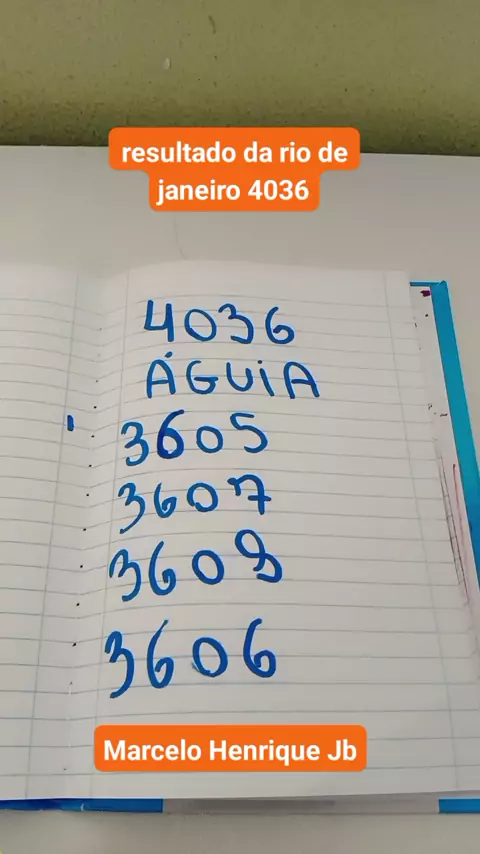 resultado da rio de
janeiro 4036
4036
ÁGUIA
3605
3607
3608
3606
Marcelo Henrique Jb